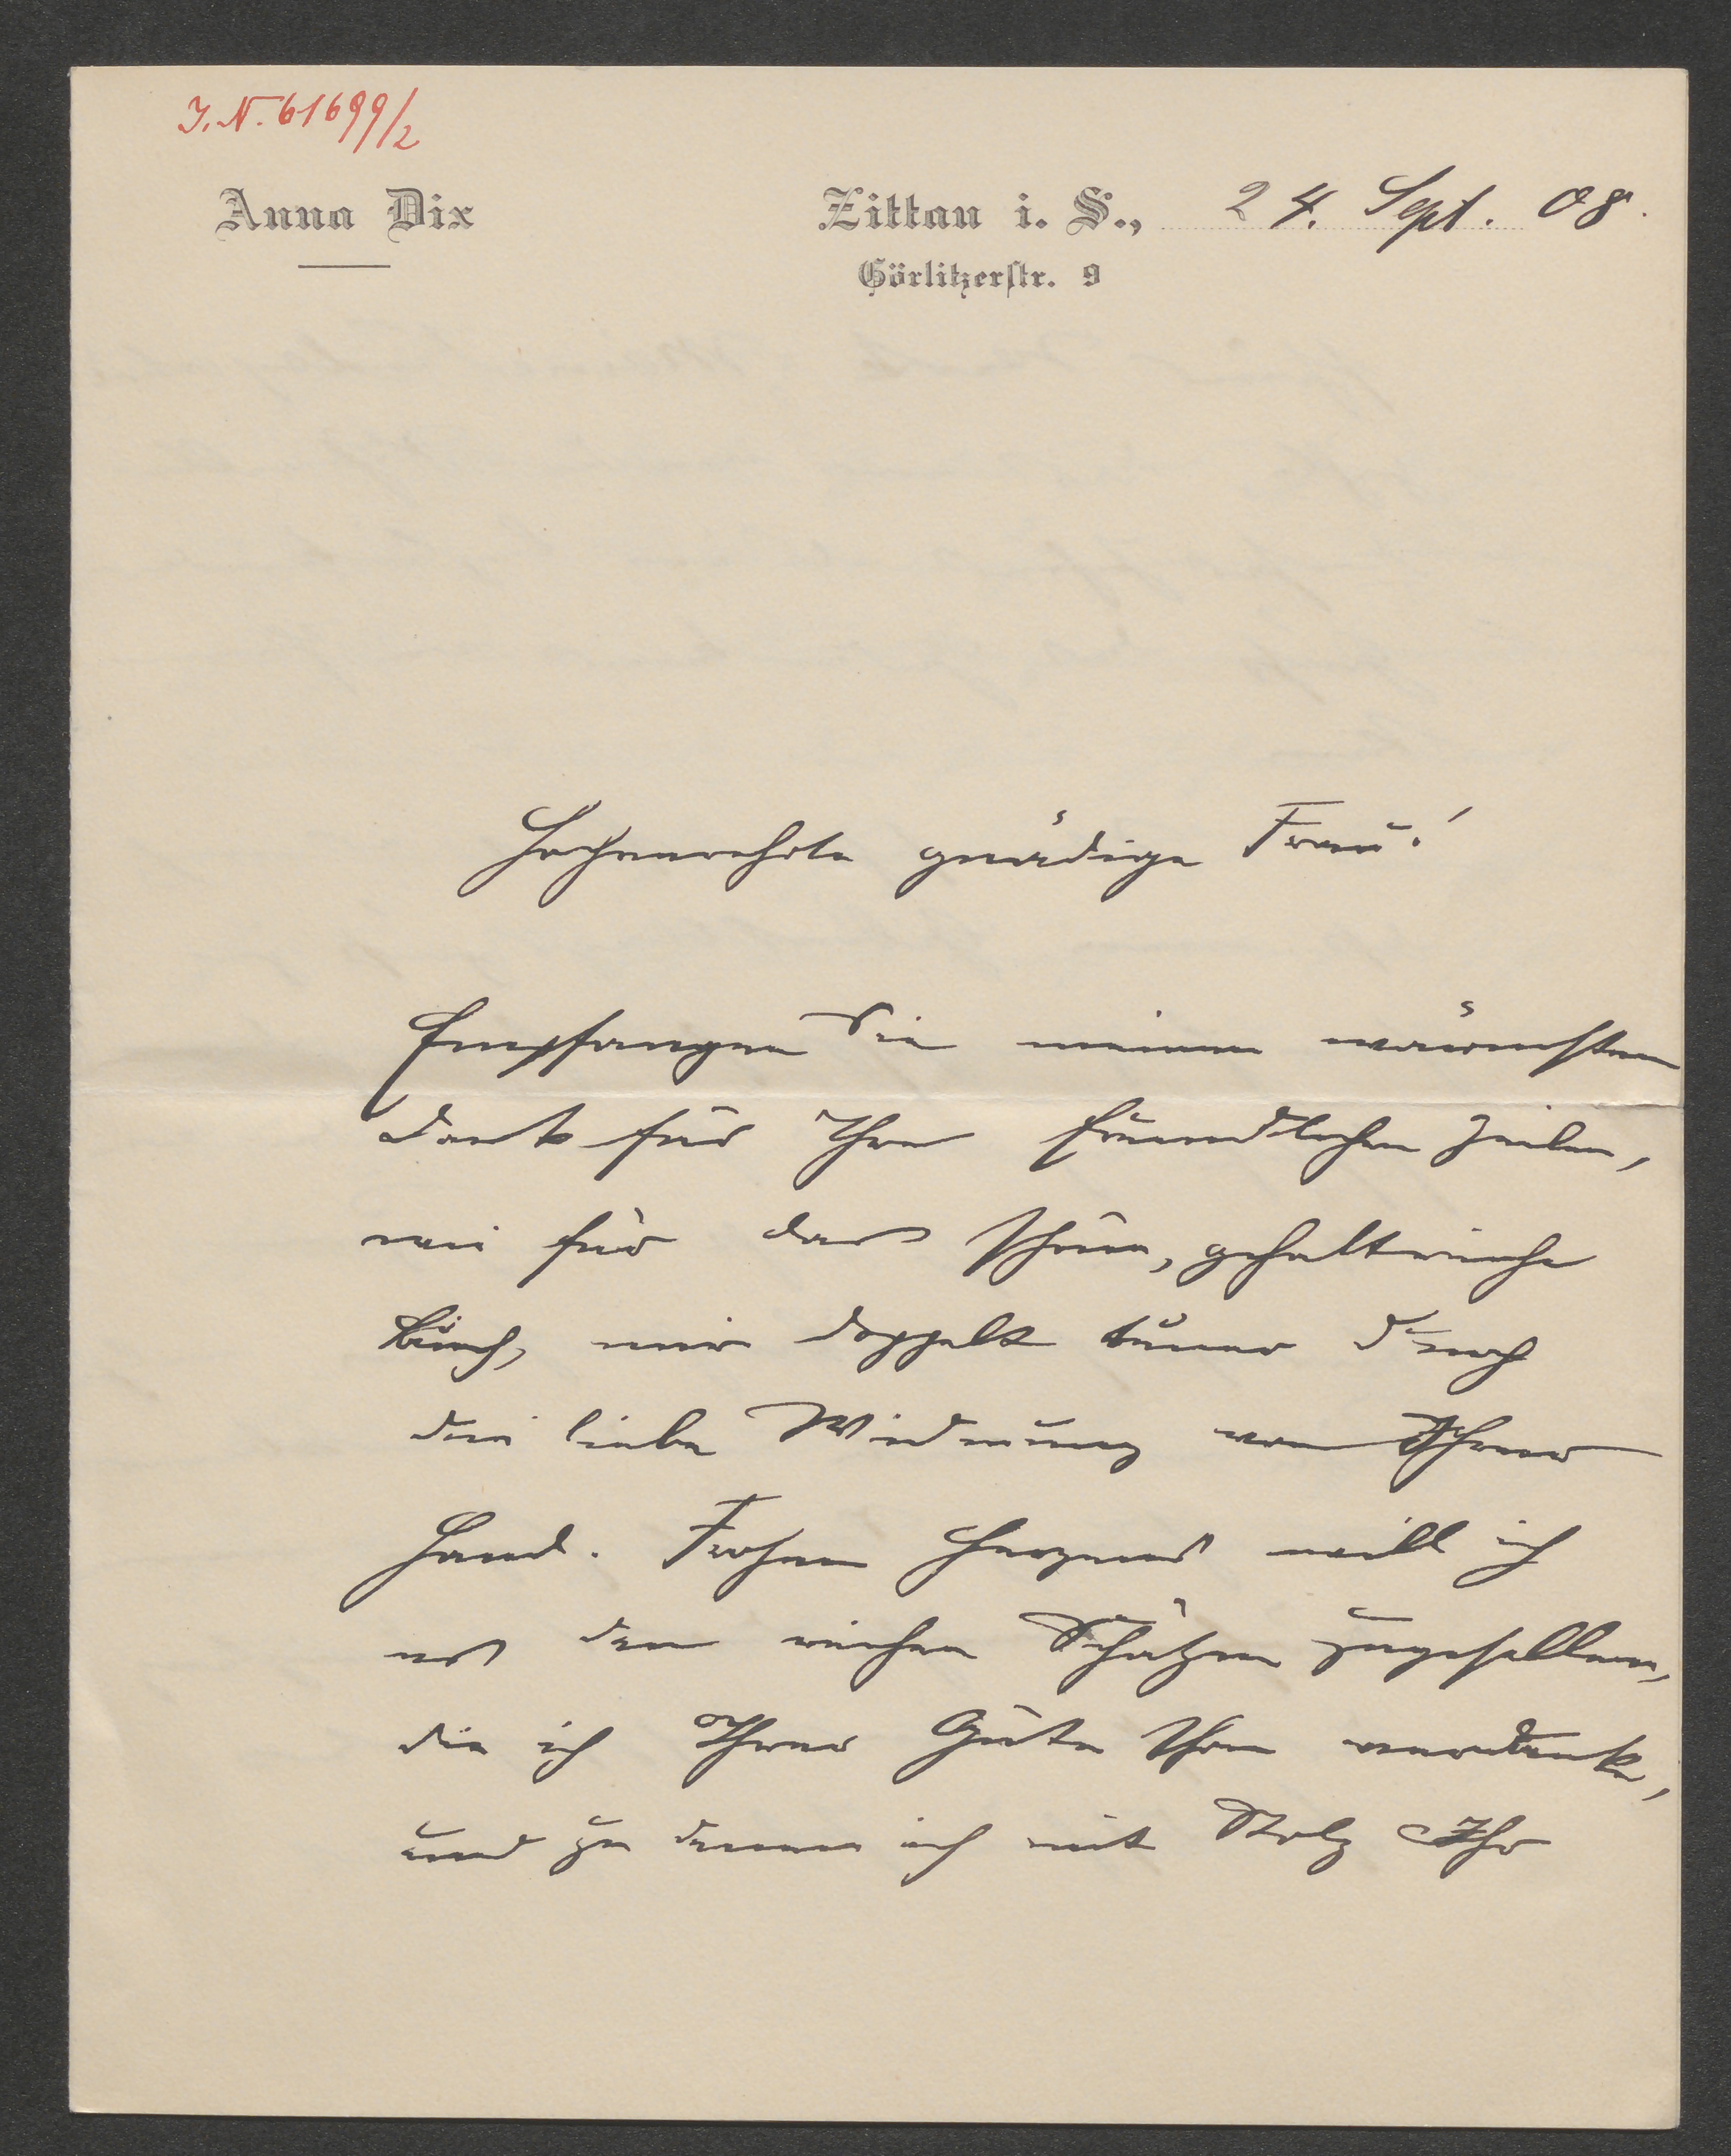 J. N. 61699/2
Anna Dix
Zittau i. S., 24. Sept. 08.
Görlitzerstr. 9
Hochverehrte gnädige Frau!
Empfangen Sie meinen wärmsten
Dank für Ihre freundlichen Zeilen,
wie für das schöne, gehaltreiche
Buch, mir doppelt teuer durch
die liebe Widmung von Ihrer
Hand. Frohen Herzens will ich
es den reichen Schätzen zugesellen,
die ich Ihrer Güte schon verdanke,
und zu denen ich mit Stolz Ihr